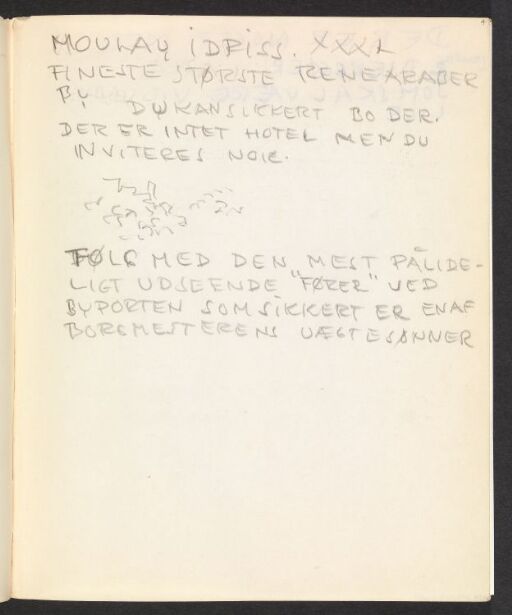 MOULAY IDRISS. XXXX
FINESTE STØRSTE RENE ARABER
BY DU KAN SIKKERT BO DER.
DER ER INTET HOTEL MEN DU
INVITERES NOK.
FØLG MED DEN MEST PÅLIDE-
LIGT UDSEENDE "FØRER" VED
BYPORTEN SOM SIKKERT ER EN AF
BORGMESTERENS UÆGTE SØNNER